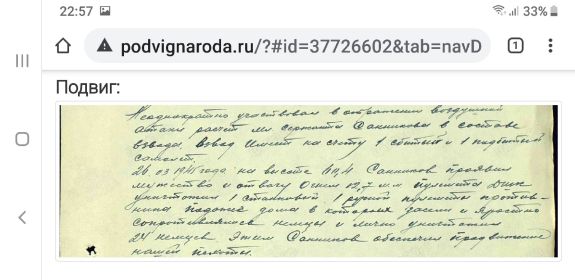 22:57 33%
podvignaroda.ru/?#id=37726602&tab=navD 1
Подвиг:
Неоднократно участвовал в отражении воздушной
атаки расчёт мл сержанта Санникова в составе
взвода. Взвод имеет на счету 1 сбитый и 1 подбитый
самолёт.
26.03 194 года на высоте 40,4 Санников проявил
мужество и отвагу Огнём 12,7 м.м пулемёта ДШК
уничтожил 1 станковый, 1 ручной пулемёта против-
ника поджёг дома в которых засели и яростно
сопротивлялись немцы и лично уничтожил
24 немцев. Этим Санников обеспечил продвижение
нашей пехоты.